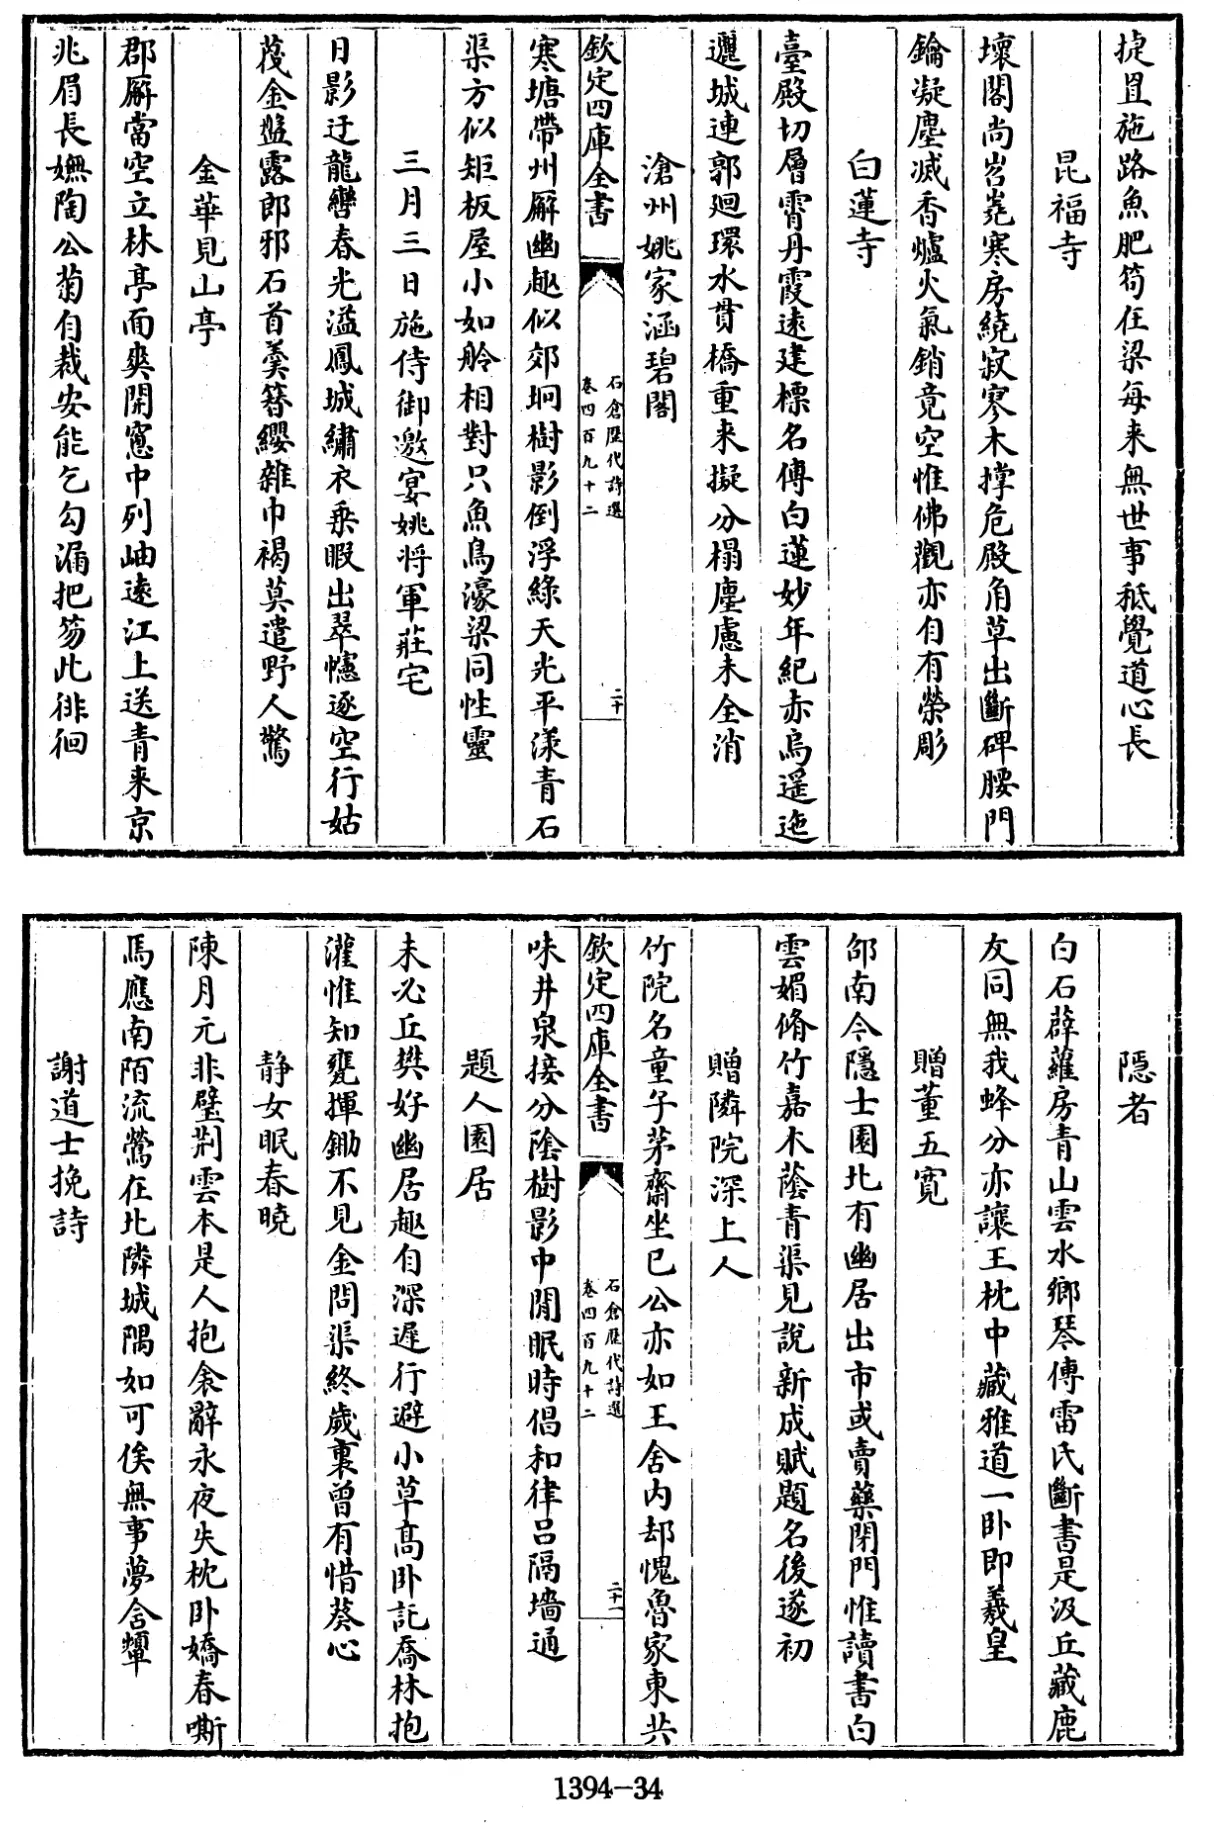 捷罝施路魚肥笱在梁每來無世事秪覺道心長
昆福寺
壞閣尚岧嶤寒房繞寂寥木撑危殿角草出斷碑腰門
鑰凝塵滅香爐火氣銷竟空惟佛觀亦自有榮彫
白蓮寺
臺殿切層霄丹霞遠建標名傳白蓮妙年紀赤烏遥迤
邐城連郭迴環水貫橋重來擬分榻塵慮未全消
滄州姚家涵碧閣
欽定四庫全書
石倉歷代詩選
卷四百九十二
二十
寒塘帶州廨幽趣似郊坰樹影倒浮綠天光平漾青石
渠方似矩板屋小如舲相對只魚鳥濠梁同性靈
三月三日施侍御邀宴姚将軍莊宅
日影迂龍轡春光溢鳳城繡衣乗暇出翠幰逐空行姑
蔑金盤露郎邪石首羹簪纓雜巾褐莫遣野人驚
金華見山亭
郡廨當空立林亭面爽開窻中列岫逺江上送青來京
兆眉長嫵陶公菊自栽安能乞勾漏把笏此徘徊
隱者
白石薜蘿房青山雲水鄉琴傳雷氏斷書是汲丘藏鹿
友同無我蜂分亦讓王枕中藏雅道一卧即羲皇
贈董五寛
邵南今隱士園北有幽居出市或賣藥閉門惟讀書白
雲媚脩竹嘉木蔭青渠見說新成賦題名後遂初
贈隣院深上人
竹院名童子茅齋坐已公亦如王舍内却愧魯家東共
欽定四庫全書
石倉歷代詩選
卷四百九十二
二十一
味井泉接分隂樹影中閒眠時倡和律吕隔墻通
題人園居
未必丘樊好幽居趣自深遲行避小草高卧託喬林抱
灌惟知甕揮鋤不見金問渠終歲裏曾有惜葵心
静女眠春曉
陳月元非璧荆雲本是人抱衾辭永夜失枕卧嬌春嘶
馬應南陌流鶯在北隣城隅如可俟無事夢含顰
謝道士挽詩
1394-34